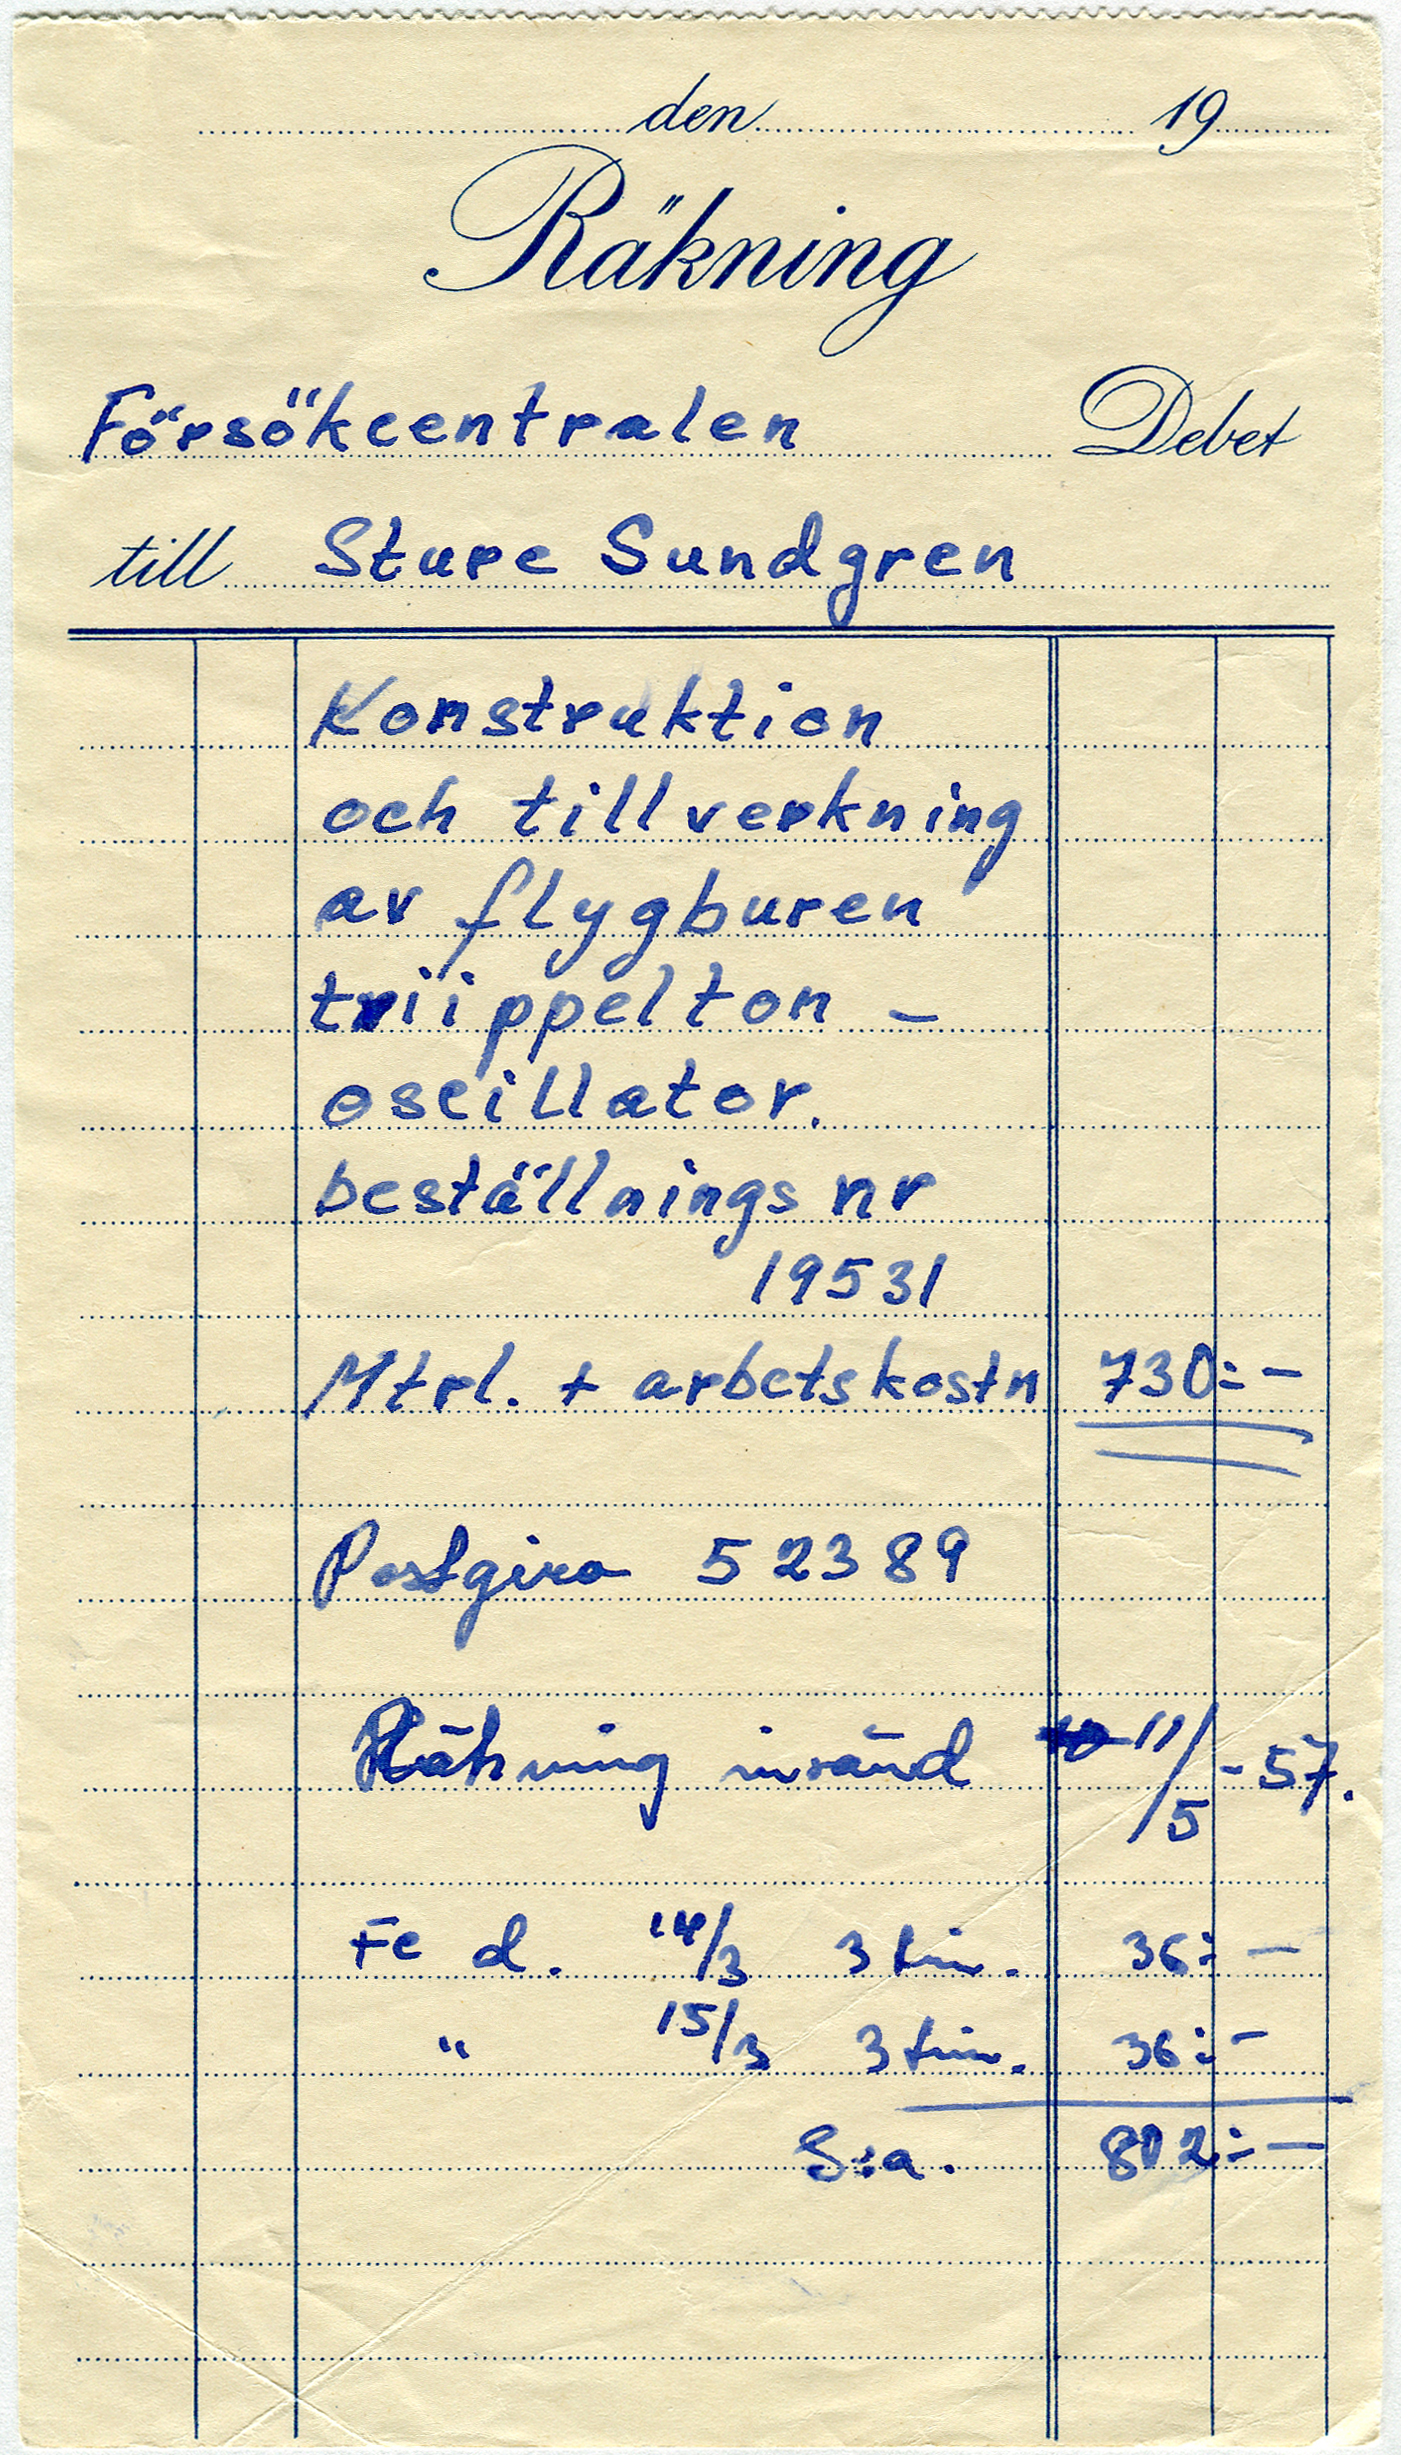 den 19
Räkning
Försökcentralen Debet
till Sture Sundgren
Konstruktion
och tillverkning
av flygburen
triippelton –
oscillator.
beställnings nr
19531
Mtrl. + arbetskostn 730:–
Postgiro 52389
Räkning insänd 11/5 -57.
Fe d. 14/3 3 tim. 36:–
" 15/3 3 tim. 36:–
S:a. 802:–